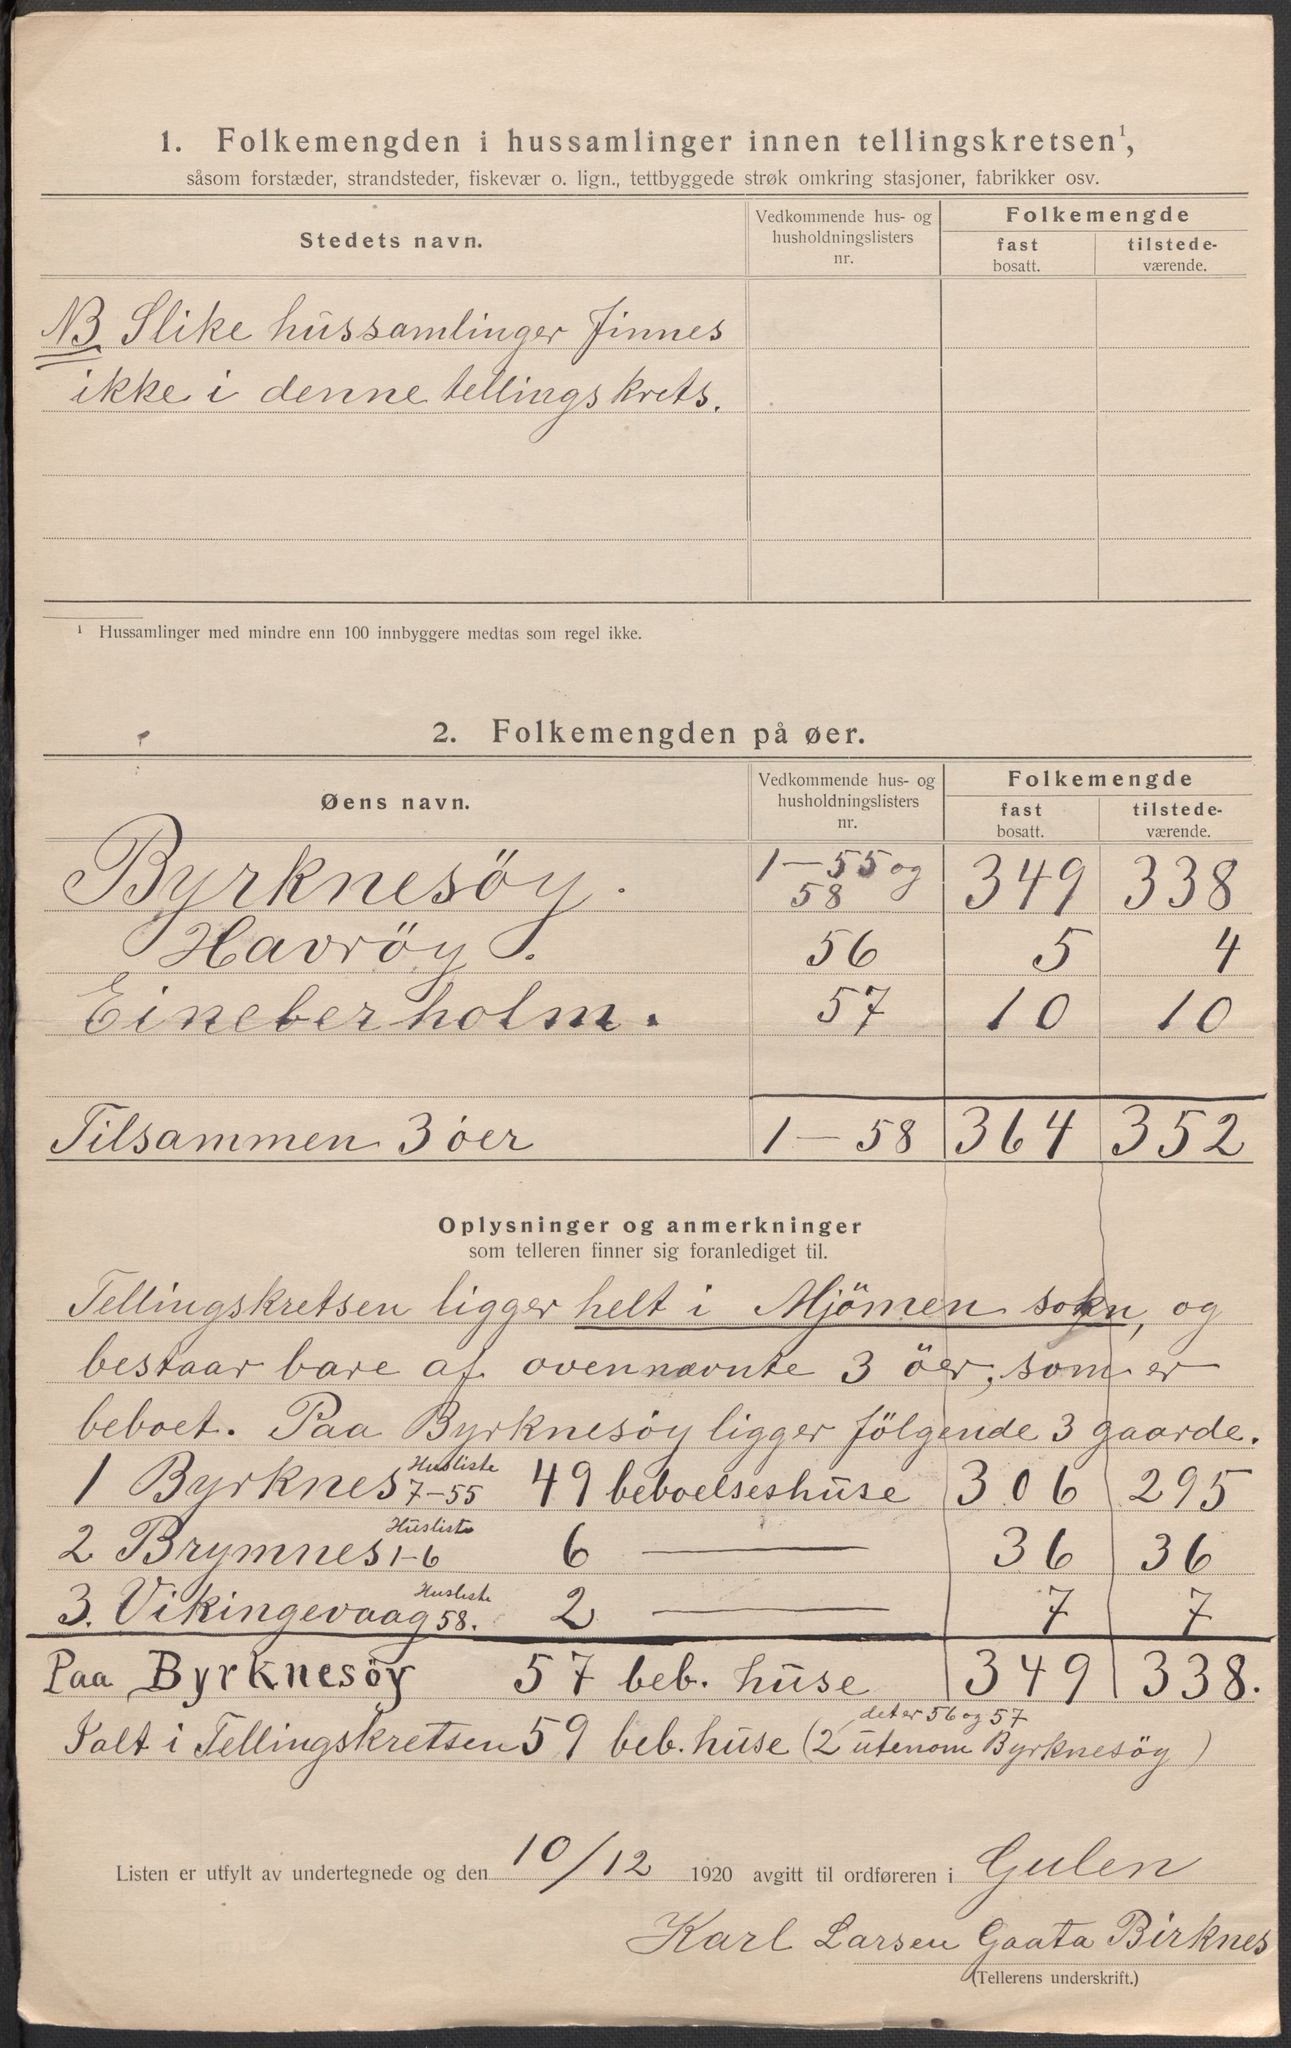 1. Folkemengden i hussamlinger innen tellingskretsen¹,
såsom forstæder, strandsteder, fiskevær o. lign., tettbyggede strøk omkring stasjoner, fabrikker osv.
Stedets navn.
Vedkommende hus- og husholdningslisters nr.
Folkemengde
fast bosatt.
tilstedeværende.
NB Slike hussamlinger finnes
ikke i denne tellingskrets.
¹ Hussamlinger med mindre enn 100 innbyggere medtas som regel ikke.
2. Folkemengden på øer.
Øens navn.
Vedkommende hus- og husholdningslisters nr.
Folkemengde
fast bosatt.
tilstedeværende.
Byrknesöy. 1-55 og 58 349 338
Havröy. 56 5 4
Eineberholm. 57 10 10
Tilsammen 3 öer 1-58 364 352
Oplysninger og anmerkninger
som telleren finner sig foranlediget til.
Tellingskretsen ligger helt i Mjömen sokn, og
bestaar bare af ovennævnte 3 öer, som er
beboet. Paa Byrknesöy ligger fölgende 3 gaarde.
1 Byrknes Husliste 7-55 49 beboelseshuse 306 295
2 Brymnes Husliste 1-6 6 — 36 36
3. Vikingevaag Husliste 58. 2 — 7 7
Paa Byrknesöy 57 beb. huse 349 338.
Ialt i Tellingskretsen 59 beb. huse (2 utenom Byrknesöy) det er 56 og 57
Listen er utfylt av undertegnede og den 10/12 1920 avgitt til ordføreren i Gulen
Karl Larsen Gaata Birknes
(Tellerens underskrift.)